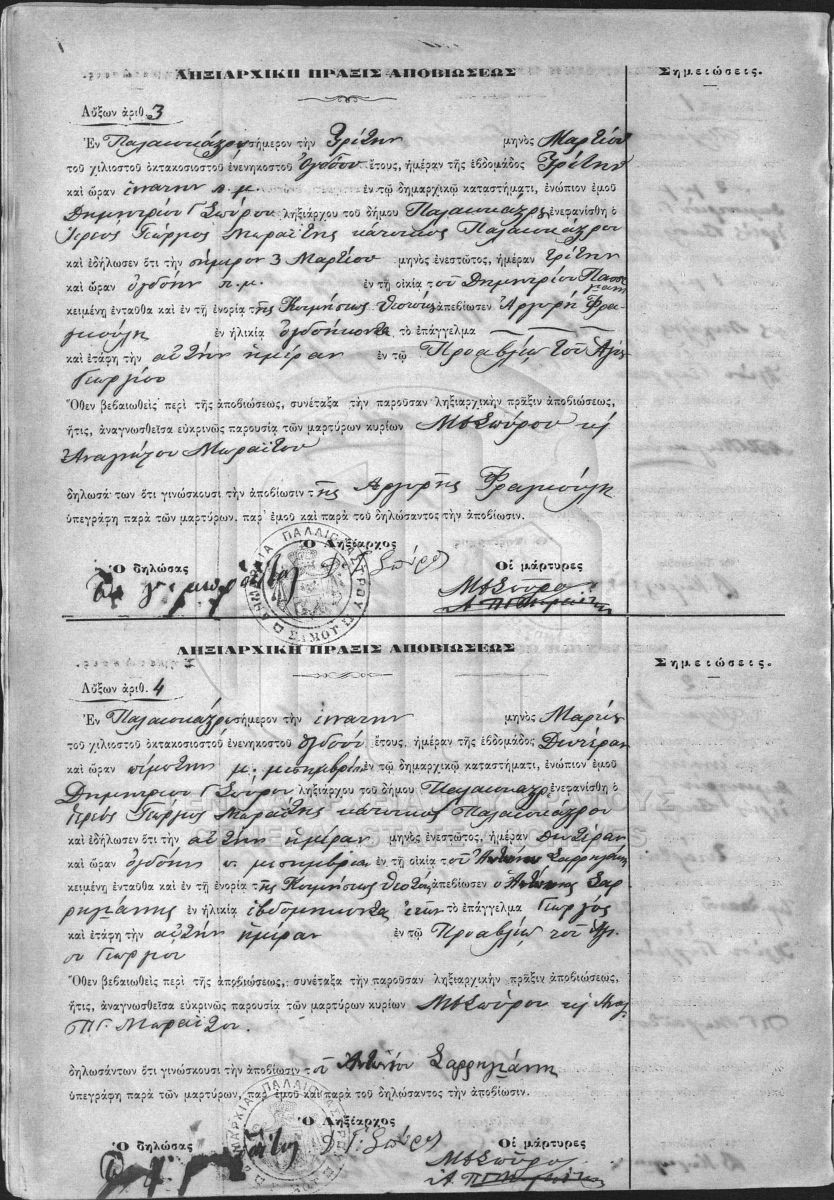 ΛΗΞΙΑΡΧΙΚΗ ΠΡΑΞΙΣ ΑΠΟΒΙΩΣΕΩΣ
Σημειώσεις.
Αὔξων ἀριθ. 3
Ἐν Παλαιοκάστρῳ σήμερον τὴν Τρίτην μηνὸς Μαρτίου
τοῦ χιλιοστοῦ ὀκτακοσιοστοῦ ἐνενηκοστοῦ ὀγδόου ἔτους, ἡμέραν τῆς ἑβδομάδος Τρίτην
καὶ ὥραν ἐνάτην π.μ. ἐν τῷ δημαρχικῷ καταστήματι, ἐνώπιον ἐμοῦ
Δημητρίου Γ Σπύρου ληξιάρχου τοῦ δήμου Παλαιοκάστρου ἐνεφανίσθη ὁ
Ἱερεὺς Γεώργιος Μωραΐτης κάτοικος Παλαιοκάστρου
καὶ ἐδήλωσεν ὅτι τὴν σήμερον 3 Μαρτίου μηνὸς ἐνεστῶτος, ἡμέραν τρίτην
καὶ ὥραν ὀγδόην π.μ. ἐν τῇ οἰκίᾳ τοῦ Δημητρίου
κειμένῃ ἐνταῦθα καὶ ἐν τῇ ἐνορίᾳ τῆς Κοιμήσεως Θεοτόκου ἀπεβίωσεν Ἀργυρὴ Φρα-
γκούλη ἐν ἡλικίᾳ ὀγδοήκοντα τὸ ἐπάγγελμα
καὶ ἐτάφη τὴν αὐτὴν ἡμέραν ἐν τῷ Προαυλίῳ τοῦ Ἁγίου
Γεωργίου
Ὅθεν βεβαιωθεὶς περὶ τῆς ἀποβιώσεως, συνέταξα τὴν παροῦσαν ληξιαρχικὴν πρᾶξιν ἀποβιώσεως,
ἥτις, ἀναγνωσθεῖσα εὐκρινῶς παρουσίᾳ τῶν μαρτύρων κυρίων Σπύρου κὴ
Μωραΐτου
δηλωσάντων ὅτι γινώσκουσι τὴν ἀποβίωσιν τῆς Ἀργυρῆς Φραγκούλη
ὑπεγράφη παρὰ τῶν μαρτύρων, παρ' ἐμοῦ καὶ παρὰ τοῦ δηλώσαντος τὴν ἀποβίωσιν.
Ὁ Ληξίαρχος
Ὁ δηλώσας
Δ Γ Σπύρου
Οἱ μάρτυρες
ΔΗΜΑΡΧΙΑ ΠΑΛΑΙΟΚΑΣΤΡΟΥ
ΛΗΞΙΑΡΧΙΚΗ ΠΡΑΞΙΣ ΑΠΟΒΙΩΣΕΩΣ
Σημειώσεις.
Αὔξων ἀριθ. 4
Ἐν Παλαιοκάστρῳ σήμερον τὴν ἐνάτην μηνὸς Μαρτίου
τοῦ χιλιοστοῦ ὀκτακοσιοστοῦ ἐνενηκοστοῦ ὀγδόου ἔτους, ἡμέραν τῆς ἑβδομάδος Δευτέραν
καὶ ὥραν πέμπτην μ. μεσημβρίαν ἐν τῷ δημαρχικῷ καταστήματι, ἐνώπιον ἐμοῦ
Δημητρίου Γ Σπύρου ληξιάρχου τοῦ δήμου Παλαιοκάστρου ἐνεφανίσθη ὁ
Ἱερεὺς Γεώργιος Μωραΐτης κάτοικος Παλαιοκάστρου
καὶ ἐδήλωσεν ὅτι τὴν αὐτὴν ἡμέραν μηνὸς ἐνεστῶτος, ἡμέραν Δευτέραν
καὶ ὥραν ὀγδόην π. μεσημβρίαν ἐν τῇ οἰκίᾳ τοῦ Ἀντωνίου Σαρρηγιάννη
κειμένῃ ἐνταῦθα καὶ ἐν τῇ ἐνορίᾳ τῆς Κοιμήσεως Θεοτόκου ἀπεβίωσεν ὁ Ἀντώνιος Σαρ-
ρηγιάννης ἐν ἡλικίᾳ ἑβδομήκοντα ἐτῶν τὸ ἐπάγγελμα Γεωργός
καὶ ἐτάφη τὴν αὐτὴν ἡμέραν ἐν τῷ Προαυλίῳ τοῦ Ἁγί-
ου Γεωργίου
Ὅθεν βεβαιωθεὶς περὶ τῆς ἀποβιώσεως, συνέταξα τὴν παροῦσαν ληξιαρχικὴν πρᾶξιν ἀποβιώσεως,
ἥτις, ἀναγνωσθεῖσα εὐκρινῶς παρουσίᾳ τῶν μαρτύρων κυρίων Σπύρου κὴ
Π Γ. Μωραΐτου.
δηλωσάντων ὅτι γινώσκουσι τὴν ἀποβίωσιν τοῦ Ἀντωνίου Σαρρηγιάννη
ὑπεγράφη παρὰ τῶν μαρτύρων, παρ' ἐμοῦ καὶ παρὰ τοῦ δηλώσαντος τὴν ἀποβίωσιν.
Ὁ Ληξίαρχος
Ὁ δηλώσας
Δ Γ. Σπύρου
Οἱ μάρτυρες